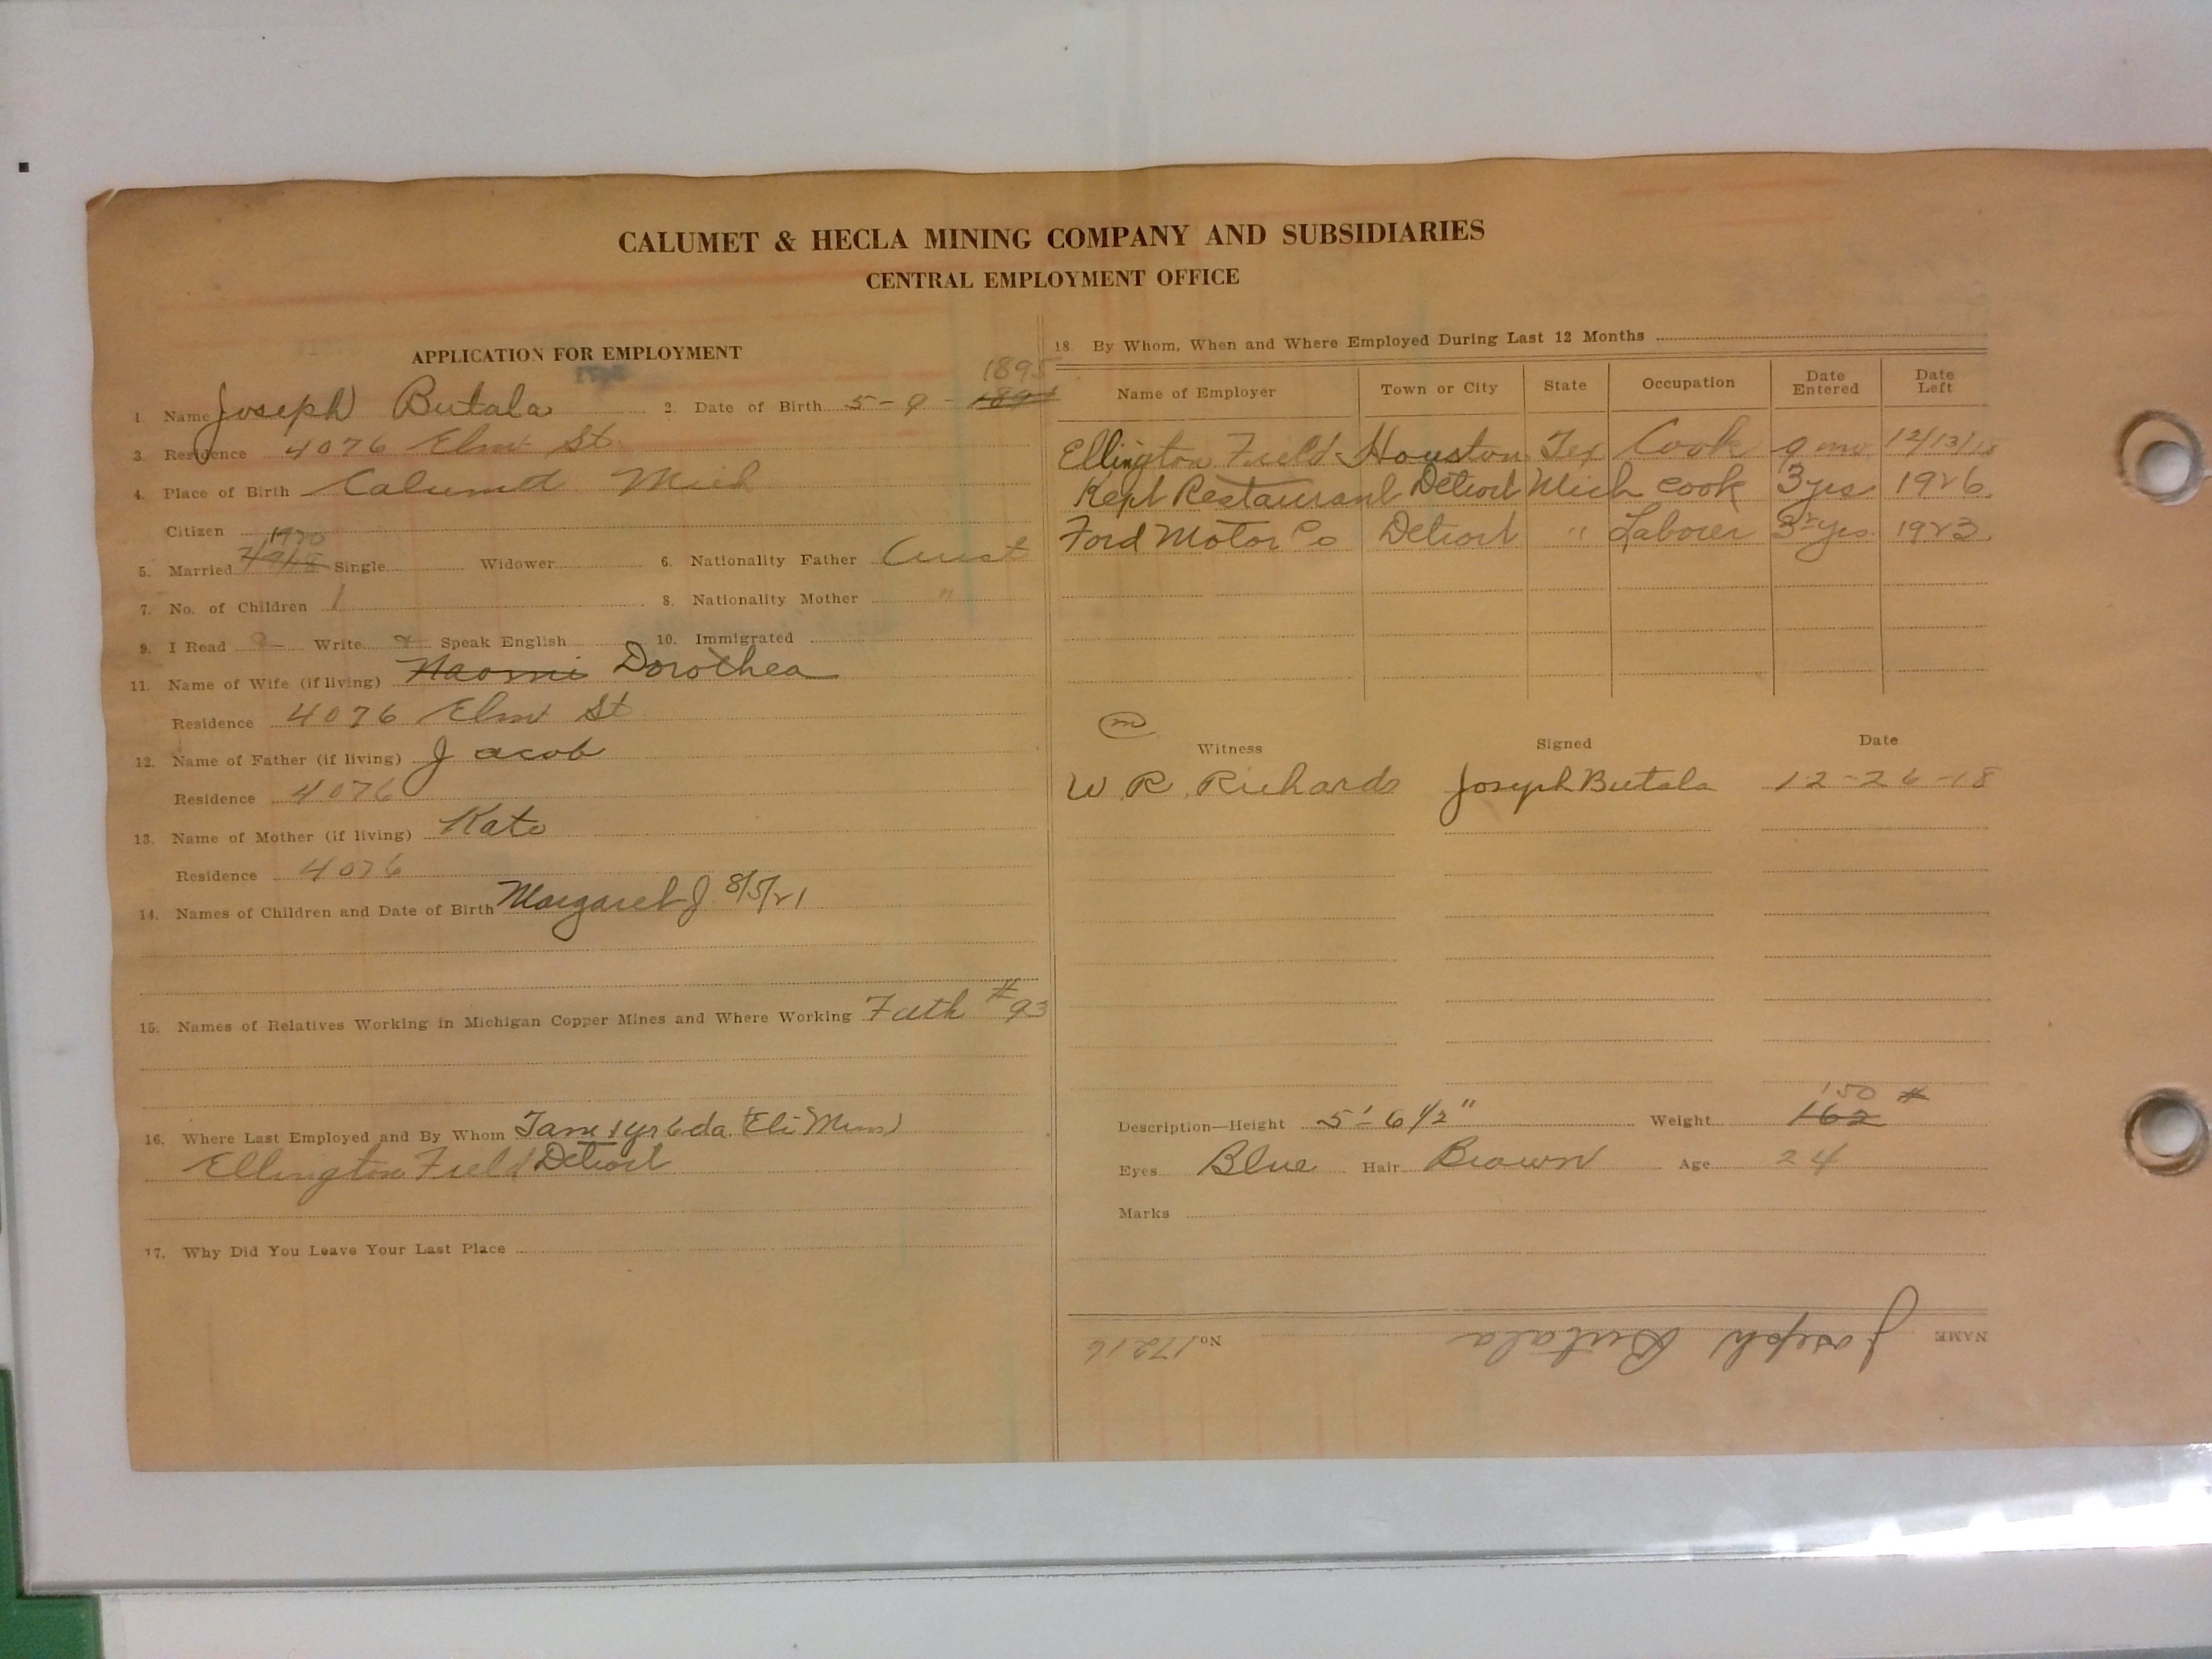 CALUMET & HECLA MINING COMPANY AND SUBSIDIARIES
CENTRAL EMPLOYMENT OFFICE
APPLICATION FOR EMPLOYMENT
1895
1. Name Joseph Butala 2. Date of Birth 5-9-1894
3. Residence 4076 Elm St.
4. Place of Birth Calumet Mich
Citizen
1920
5. Married 7/9/18 Single Widower 6. Nationality Father Aust
7. No. of Children 1 8. Nationality Mother "
9. I Read Write Speak English 10. Immigrated
11. Name of Wife (if living) Naomi Dorothea
Residence 4076 Elm St
12. Name of Father (if living) Jacob
Residence 4076
13. Name of Mother (if living) Kate
Residence 4076
14. Names of Children and Date of Birth Margaret J. 8/5/21
15. Names of Relatives Working in Michigan Copper Mines and Where Working Fath #93
16. Where Last Employed and By Whom Tam 1 yr 6 da.
Ellington Field Detroit
17. Why Did You Leave Your Last Place
18. By Whom, When and Where Employed During Last 12 Months
Name of Employer Town or City State Occupation Date Entered Date Left
Ellington Field Houston Tex Cook 9 mo 12/13/18
Kept Restaurant Detroit Mich Cook 3 yrs 1926.
Ford Motor Co Detroit " Laborer 3 yrs 1923.
m
Witness Signed Date
W. R. Richards Joseph Butala 12-26-18
150 #
Description—Height 5'-6 1/2" Weight 162
Eyes Blue Hair Brown Age 24
Marks
NAME Joseph Butala No. 17216